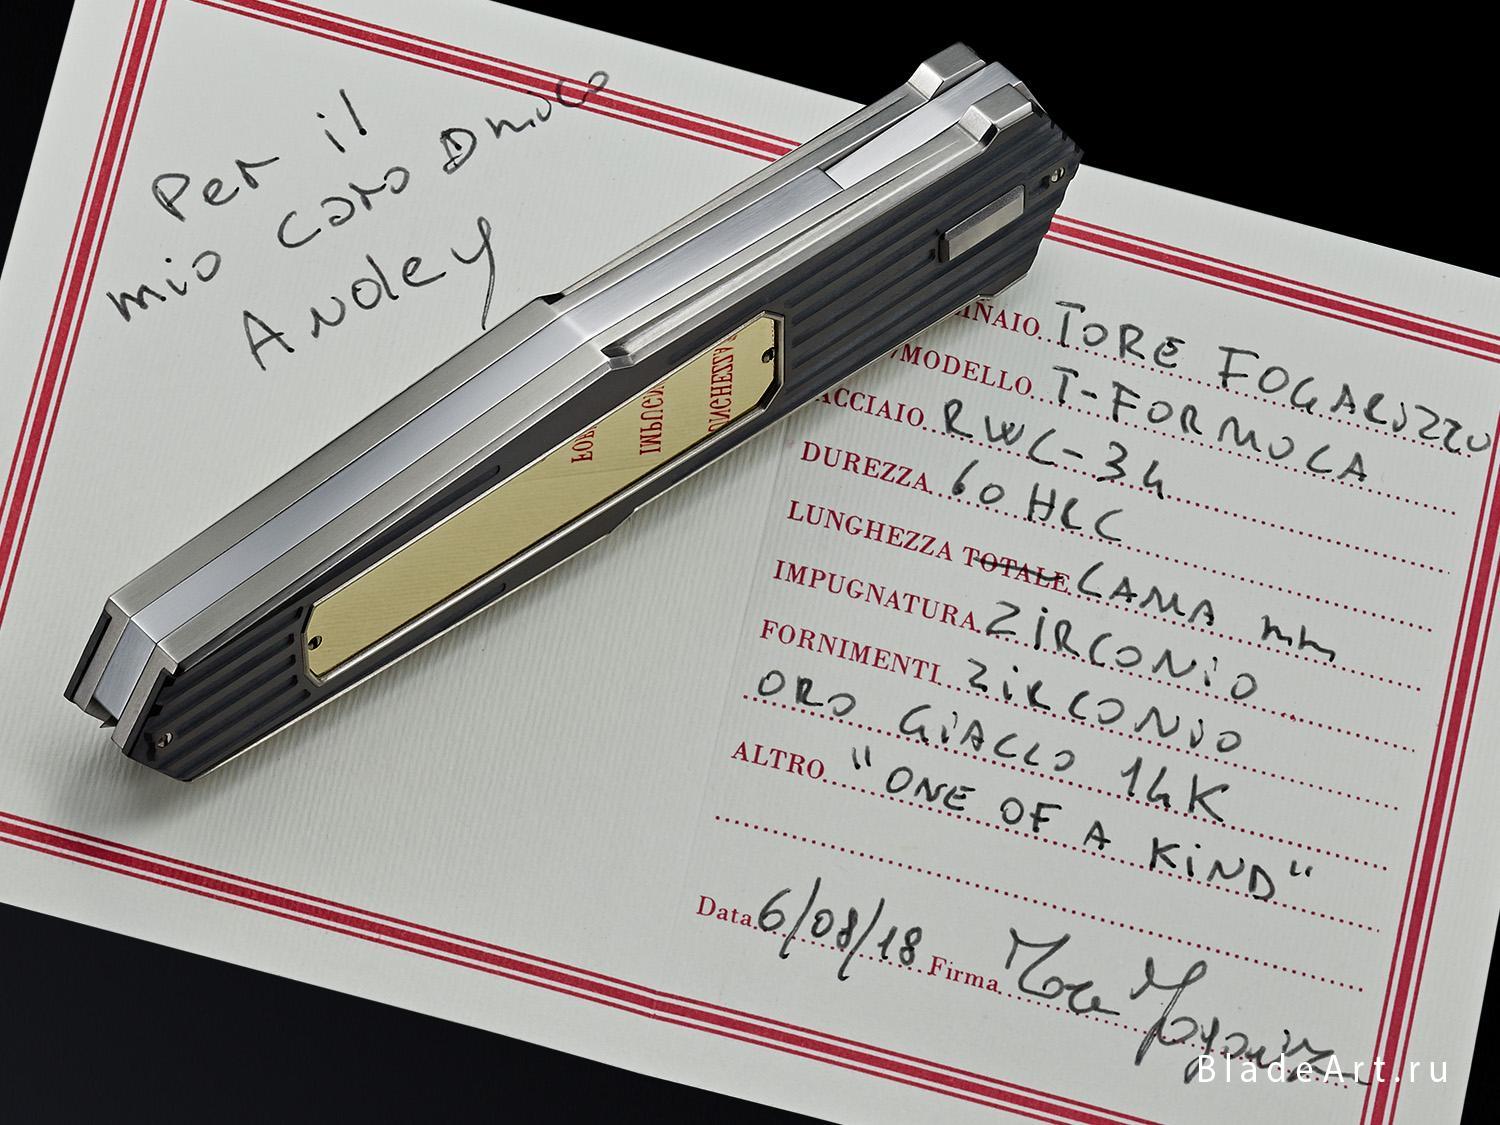 Per il
mio caro Amico
Andrey
INAIO TORE FOGARIZZU
/MODELLO T-FORMULA
ACCIAIO RWL-34
DUREZZA 60 HRC
LUNGHEZZA TOTALE LAMA mm
IMPUGNATURA ZIRCONIO
FORNIMENTI ZIRCONIO
ORO GIALLO 14K
ALTRO "ONE OF A KIND"
Data 6/08/18 Firma
BladeArt.ru